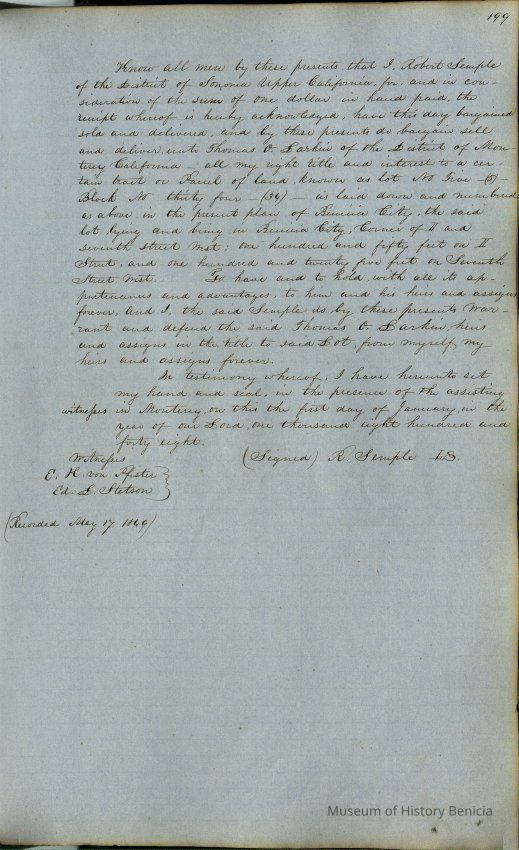 199
Know all men by these presents, that I, Robert Semple
of the District of Sonoma Upper California, for, and in con-
sideration of the sum of one dollar in hand paid, the
receipt whereof is hereby acknowledged, have this day bargained
sold and delivered, and by these presents do bargain sell
and deliver, unto Thomas O. Larkin of the District of Mon-
terey California - all my right title and interest to a cer-
tain tract or Parcel of land, known as lot No Five -(5)-
Block No thirty four -(34)- as laid down and numbered
as above in the present plan of Benicia City, the said
lot lying and being in Benicia City, Corner of II and
seventh Street West; one hundred and fifty feet on II
Street, and one hundred and twenty five feet on Seventh
Street West. To have and to hold, with all its ap-
purtenances and advantages, to him and his heirs and assigns
forever, and I, the said Semple do by these presents War-
rant and defend the said Thomas O. Larkin, heirs
and assigns in the title to said Lot, from myself, my
heirs and assigns forever.
In testimony whereof, I have hereunto set
my hand and seal, in the presence of the assisting
witnesses in Monterey, on this the first day of January, in the
year of our Lord, one thousand eight hundred and
forty eight.
Witnesses (Signed) R. Semple L.S.
E. H. von Pfister
Ed. L. Stetson
(Recorded May 17, 1849)
Museum of History Benicia